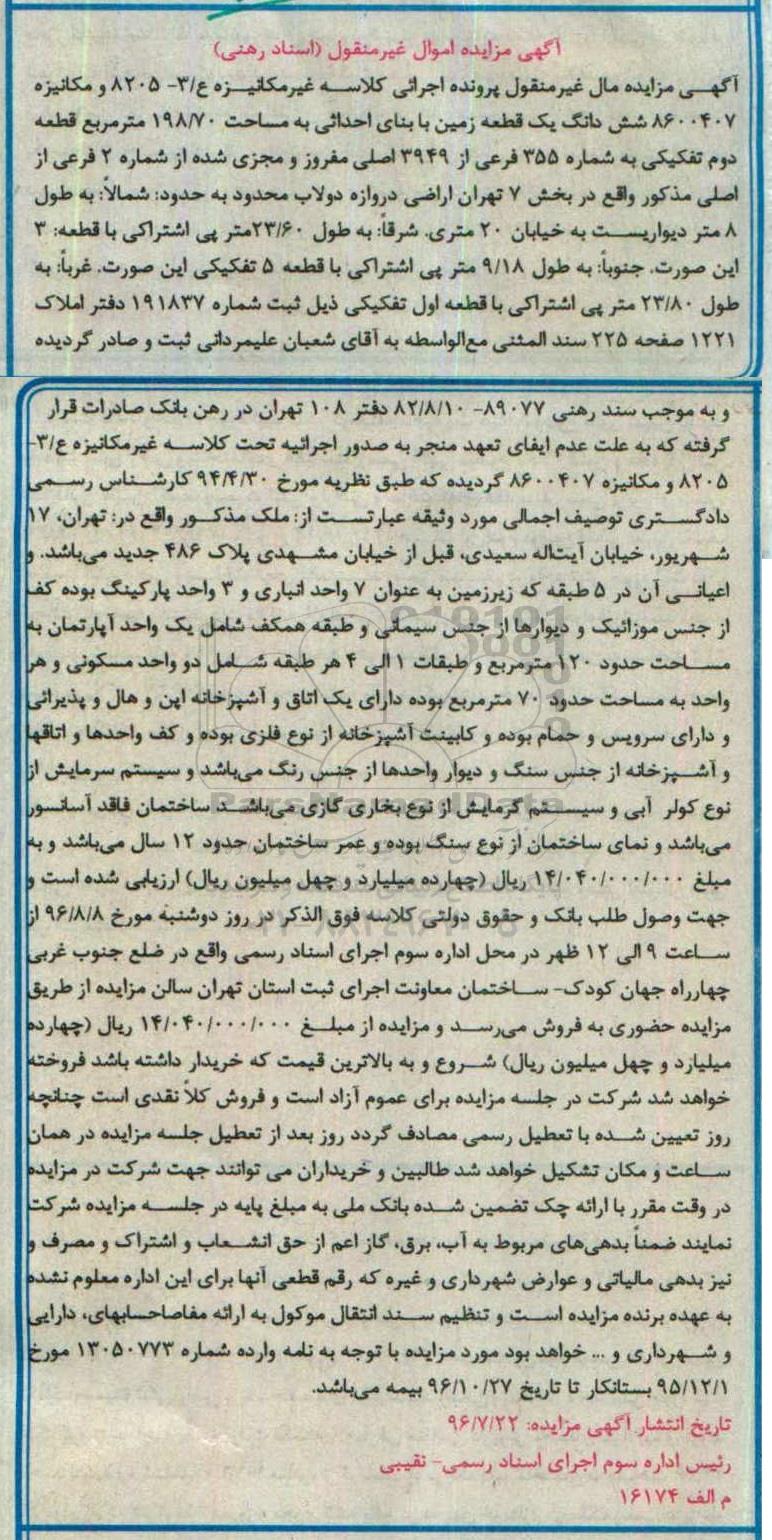 آگهی مزایده اموال غیرمنقول (اسناد رهنی)
آگهی مزایده مال غیرمنقول پرونده اجرائی کلاسه غیرمکانیزه ع/۳- ۸۲۰۵ و مکانیزه
۸۶۰۰۴۰۷ شش دانگ یک قطعه زمین با بنای احداثی به مساحت ۱۹۸/۷۰ مترمربع قطعه
دوم تفکیکی به شماره ۳۵۵ فرعی از ۳۹۴۹ اصلی مفروز و مجزی شده از شماره ۲ فرعی از
اصلی مذکور واقع در بخش ۷ تهران اراضی دروازه دولاب محدود به حدود: شمالاً: به طول
۸ متر دیواریست به خیابان ۲۰ متری. شرقاً: به طول ۲۳/۶۰متر پی اشتراکی با قطعه: ۳
این صورت. جنوباً: به طول ۹/۱۸ متر پی اشتراکی با قطعه ۵ تفکیکی این صورت. غرباً: به
طول ۲۳/۸۰ متر پی اشتراکی با قطعه اول تفکیکی ذیل ثبت شماره ۱۹۱۸۳۷ دفتر املاک
۱۲۲۱ صفحه ۲۲۵ سند المثنی مع‌الواسطه به آقای شعبان علیمردانی ثبت و صادر گردیده
و به موجب سند رهنی ۸۹۰۷۷- ۸۲/۸/۱۰ دفتر ۱۰۸ تهران در رهن بانک صادرات قرار
گرفته که به علت عدم ایفای تعهد منجر به صدور اجرائیه تحت کلاسه غیرمکانیزه ع/۳-
۸۲۰۵ و مکانیزه ۸۶۰۰۴۰۷ گردیده که طبق نظریه مورخ ۹۴/۴/۳۰ کارشناس رسمی
دادگستری توصیف اجمالی مورد وثیقه عبارتست از: ملک مذکور واقع در: تهران، ۱۷
شهریور، خیابان آیت‌اله سعیدی، قبل از خیابان مشهدی پلاک ۴۸۶ جدید می‌باشد. و
اعیانی آن در ۵ طبقه که زیرزمین به عنوان ۷ واحد انباری و ۳ واحد پارکینگ بوده کف
از جنس موزائیک و دیوارها از جنس سیمانی و طبقه همکف شامل یک واحد آپارتمان به
مساحت حدود ۱۲۰ مترمربع و طبقات ۱ الی ۴ هر طبقه شامل دو واحد مسکونی و هر
واحد به مساحت حدود ۷۰ مترمربع بوده دارای یک اتاق و آشپزخانه اپن و هال و پذیرائی
و دارای سرویس و حمام بوده و کابینت آشپزخانه از نوع فلزی بوده و کف واحدها و اتاقها
و آشپزخانه از جنس سنگ و دیوار واحدها از جنس رنگ می‌باشد و سیستم سرمایش از
نوع کولر آبی و سیستم گرمایش از نوع بخاری گازی می‌باشد ساختمان فاقد آسانسور
می‌باشد و نمای ساختمان از نوع سنگ بوده و عمر ساختمان حدود ۱۲ سال می‌باشد و به
مبلغ ۱۴/۰۴۰/۰۰۰/۰۰۰ ریال (چهارده میلیارد و چهل میلیون ریال) ارزیابی شده است و
جهت وصول طلب بانک و حقوق دولتی کلاسه فوق الذکر در روز دوشنبه مورخ ۹۶/۸/۸ از
ساعت ۹ الی ۱۲ ظهر در محل اداره سوم اجرای اسناد رسمی واقع در ضلع جنوب غربی
چهارراه جهان کودک- ساختمان معاونت اجرای ثبت استان تهران سالن مزایده از طریق
مزایده حضوری به فروش می‌رسد و مزایده از مبلغ ۱۴/۰۴۰/۰۰۰/۰۰۰ ریال (چهارده
میلیارد و چهل میلیون ریال) شروع و به بالاترین قیمت که خریدار داشته باشد فروخته
خواهد شد شرکت در جلسه مزایده برای عموم آزاد است و فروش کلاً نقدی است چنانچه
روز تعیین شده با تعطیل رسمی مصادف گردد روز بعد از تعطیل جلسه مزایده در همان
ساعت و مکان تشکیل خواهد شد طالبین و خریداران می توانند جهت شرکت در مزایده
در وقت مقرر با ارائه چک تضمین شده بانک ملی به مبلغ پایه در جلسه مزایده شرکت
نمایند ضمناً بدهی‌های مربوط به آب، برق، گاز اعم از حق انشعاب و اشتراک و مصرف و
نیز بدهی مالیاتی و عوارض شهرداری و غیره که رقم قطعی آنها برای این اداره معلوم نشده
به عهده برنده مزایده است و تنظیم سند انتقال موکول به ارائه مفاصاحسابهای، دارایی
و شهرداری و ... خواهد بود مورد مزایده با توجه به نامه وارده شماره ۱۳۰۵۰۷۷۳ مورخ
۹۵/۱۲/۱ بستانکار تا تاریخ ۹۶/۱۰/۲۷ بیمه می‌باشد.
تاریخ انتشار آگهی مزایده: ۹۶/۷/۲۲
رئیس اداره سوم اجرای اسناد رسمی- نقیبی
م الف ۱۶۱۷۴